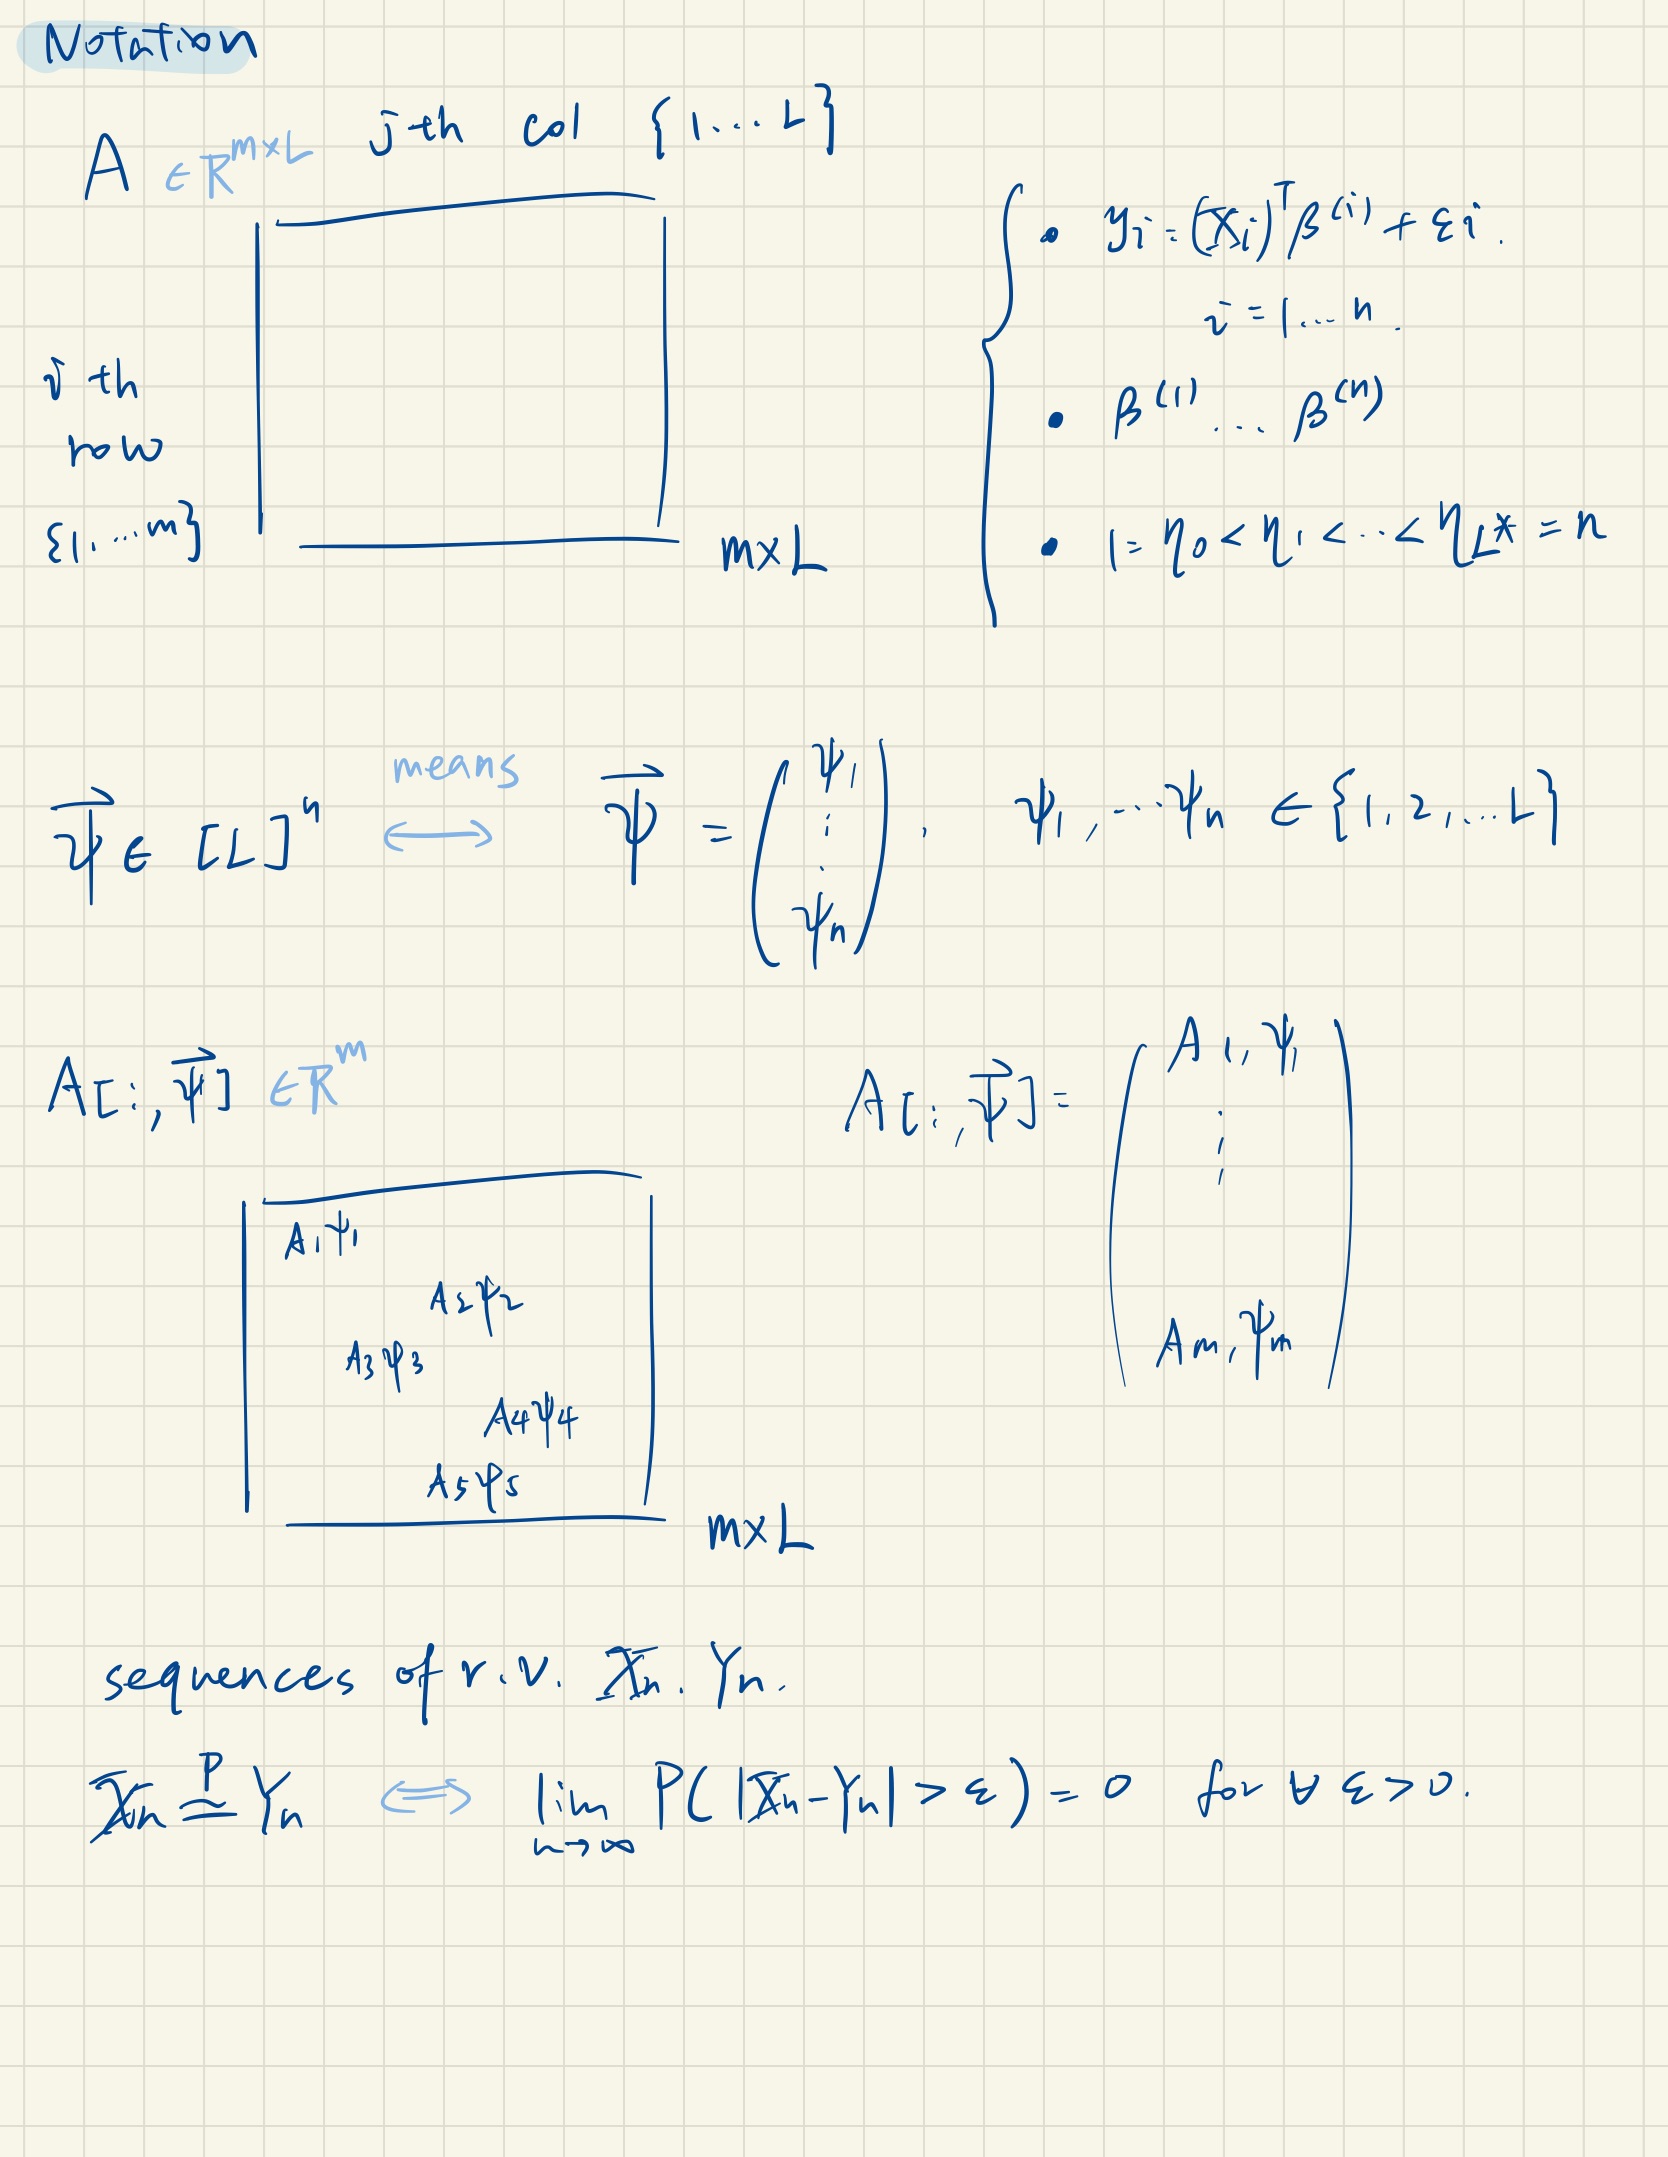 Notation
A ∈ ℝ^{m×L} j-th col {1....L}
i-th
row
{1,...m}
m×L
• y_i = (X_i)^T β^{(i)} + ε_i.
i = 1...n.
• β^{(1)} ... β^{(n)}
• 1 = η_0 < η_1 < ... < η_{L*} = n
means
ψ⃗ ∈ [L]^n ⟷ ψ⃗ = (ψ_1 ⋮ ψ_n), ψ_1, ...ψ_n ∈ {1,2,...L}
A[:,ψ⃗] ∈ ℝ^m
A[:,ψ⃗] = (A_{1,ψ_1} ⋮ A_{m,ψ_m})
A_1ψ_1
A_2ψ_2
A_3ψ_3
A_4ψ_4
A_5ψ_5
m×L
sequences of r.v. X_n. Y_n.
X_n ≃^P Y_n ⟺ lim_{n→∞} P(|X_n - Y_n| > ε) = 0 for ∀ ε > 0.